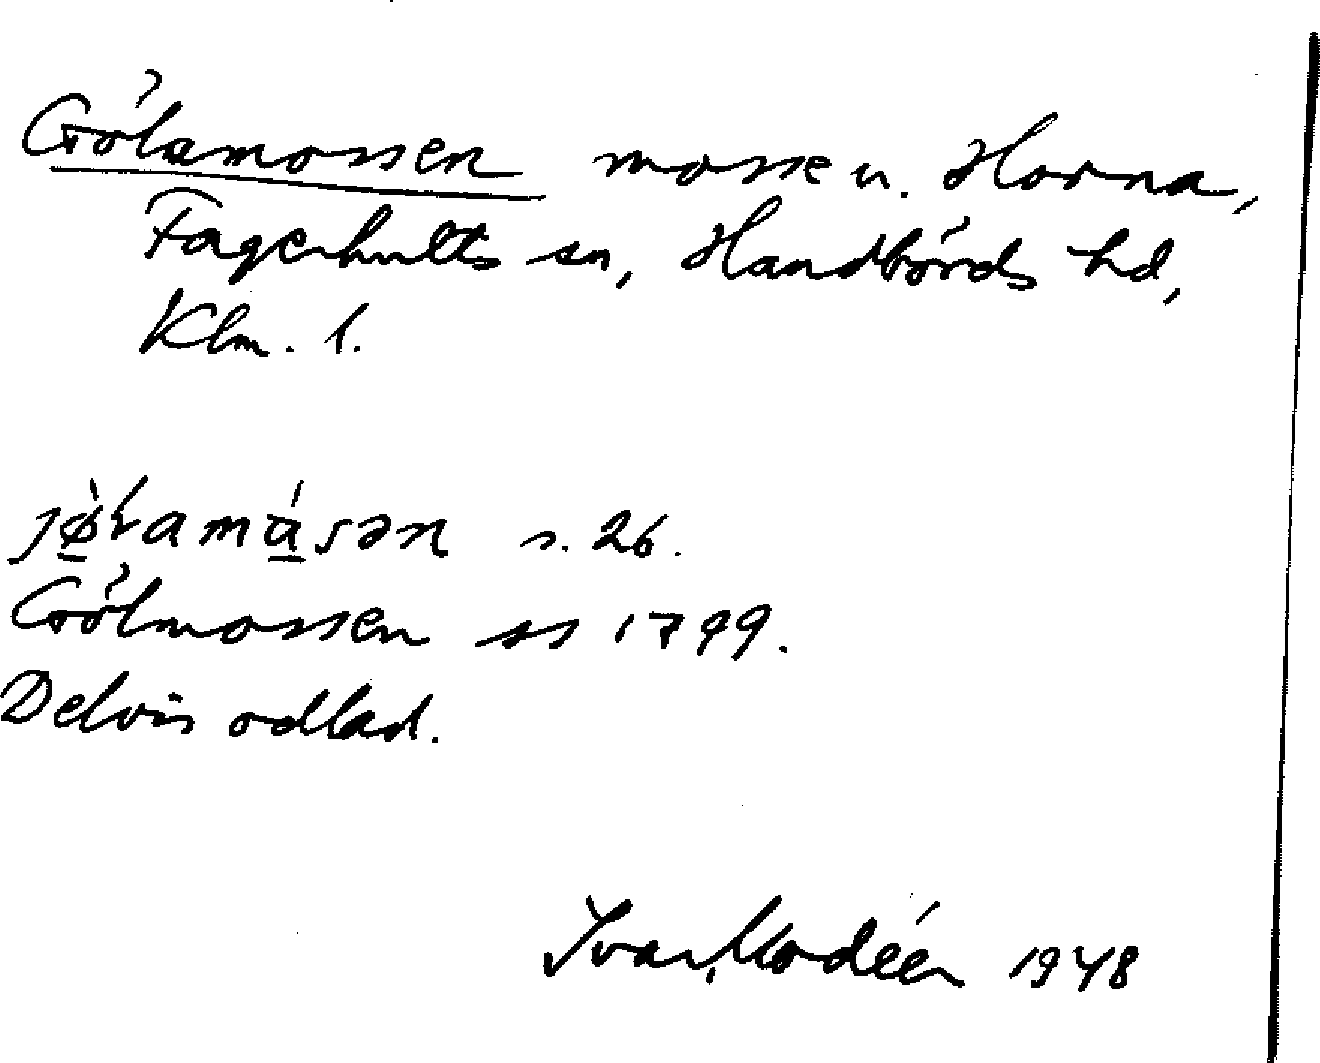 Gölamossen mosse u. Horna,
Fagerhults sn, Handbörds hd,
Klm. l.
jø̀lamásən s. 26.
Gölmossen ss 1799.
Delvis odlad.
Ivar Modéer 1948